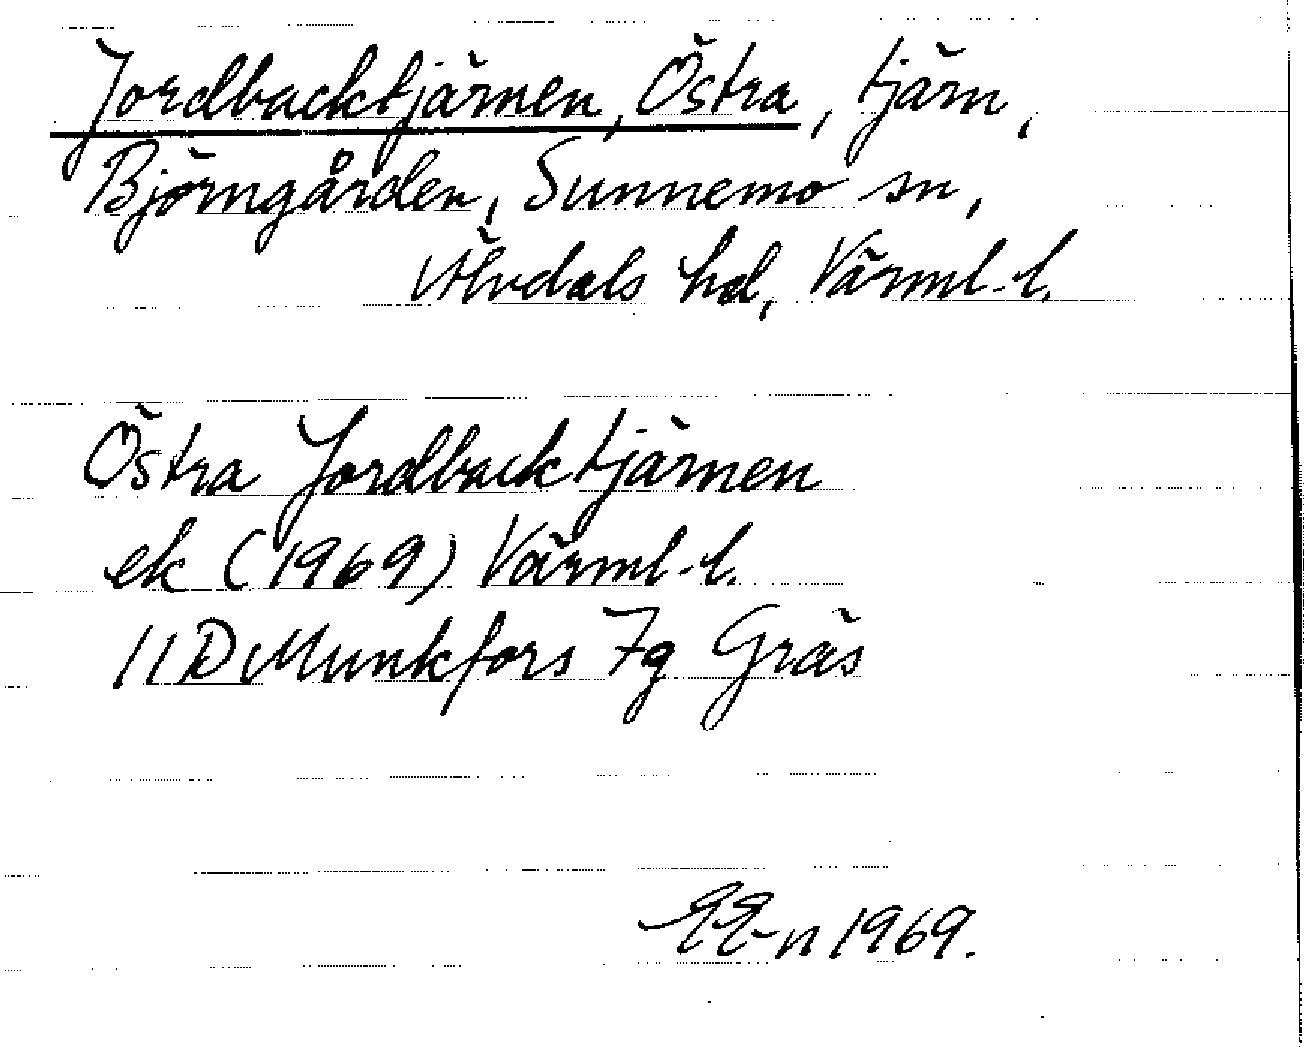 Jordbacktjärnen, Östra, tjärn,
Björngården, Sunnemo sn,
Älvdals hd, Värml. l.
Östra Jordbacktjärnen
ek (1969) Värml. l.
11D Munkfors 7g Gräs
EE-n 1969.